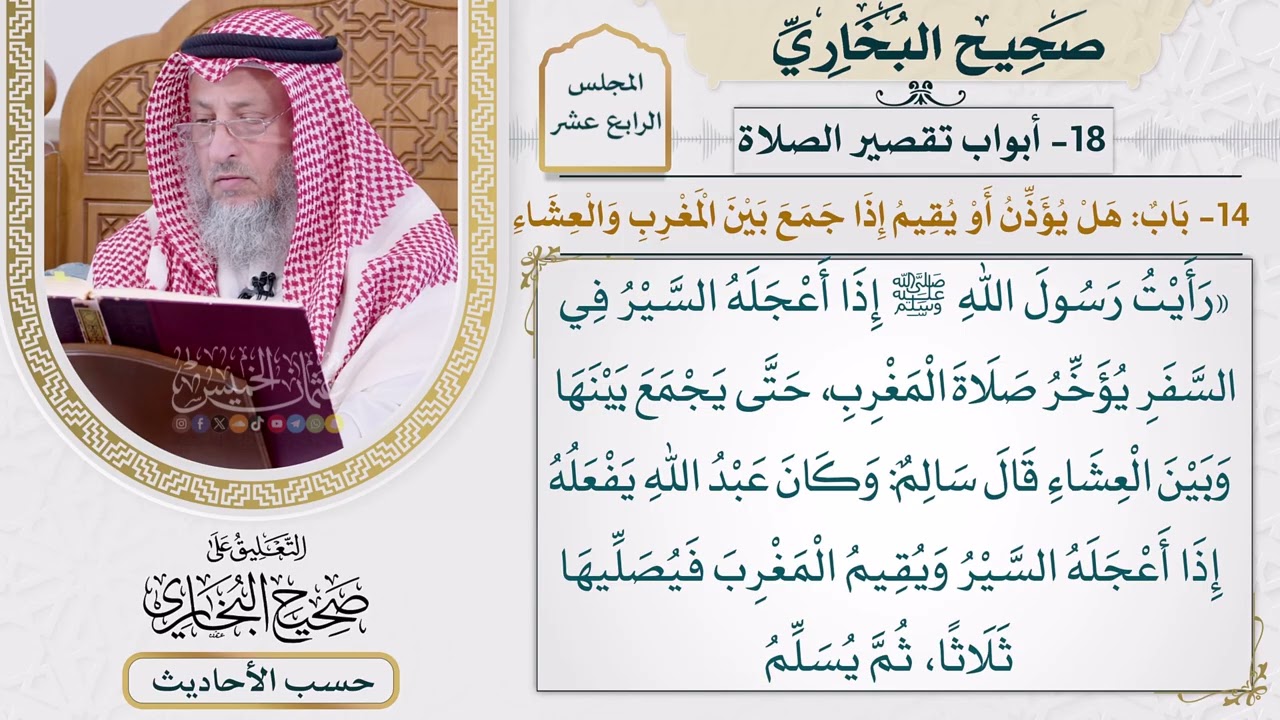 صَحِيح البُخَارِيِّ
المجلس
الرابع عشر
18- أبواب تقصير الصلاة
14- بَابٌ: هَلْ يُؤَذِّنُ أَوْ يُقِيمُ إِذَا جَمَعَ بَيْنَ الْمَغْرِبِ وَالْعِشَاءِ
«رَأَيْتُ رَسُولَ اللهِ ﷺ إِذَا أَعْجَلَهُ السَّيْرُ فِي
السَّفَرِ يُؤَخِّرُ صَلَاةَ الْمَغْرِبِ، حَتَّى يَجْمَعَ بَيْنَهَا
وَبَيْنَ الْعِشَاءِ قَالَ سَالِمٌ: وَكَانَ عَبْدُ اللهِ يَفْعَلُهُ
إِذَا أَعْجَلَهُ السَّيْرُ وَيُقِيمُ الْمَغْرِبَ فَيُصَلِّيهَا
ثَلَاثًا، ثُمَّ يُسَلِّمُ
عثمان الخميس
التَّعْلِيقُ عَلَى
صَحِيحِ البُخَارِي
حسب الأحاديث